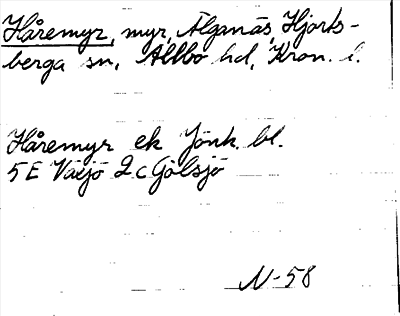 Håremyr, myr, Älganäs, Hjorts-
berga sn, Allbo hd, Kron. l.
Håremyr ek Jönk. bl.
5E Växjö 2c Gölsjö
N-58